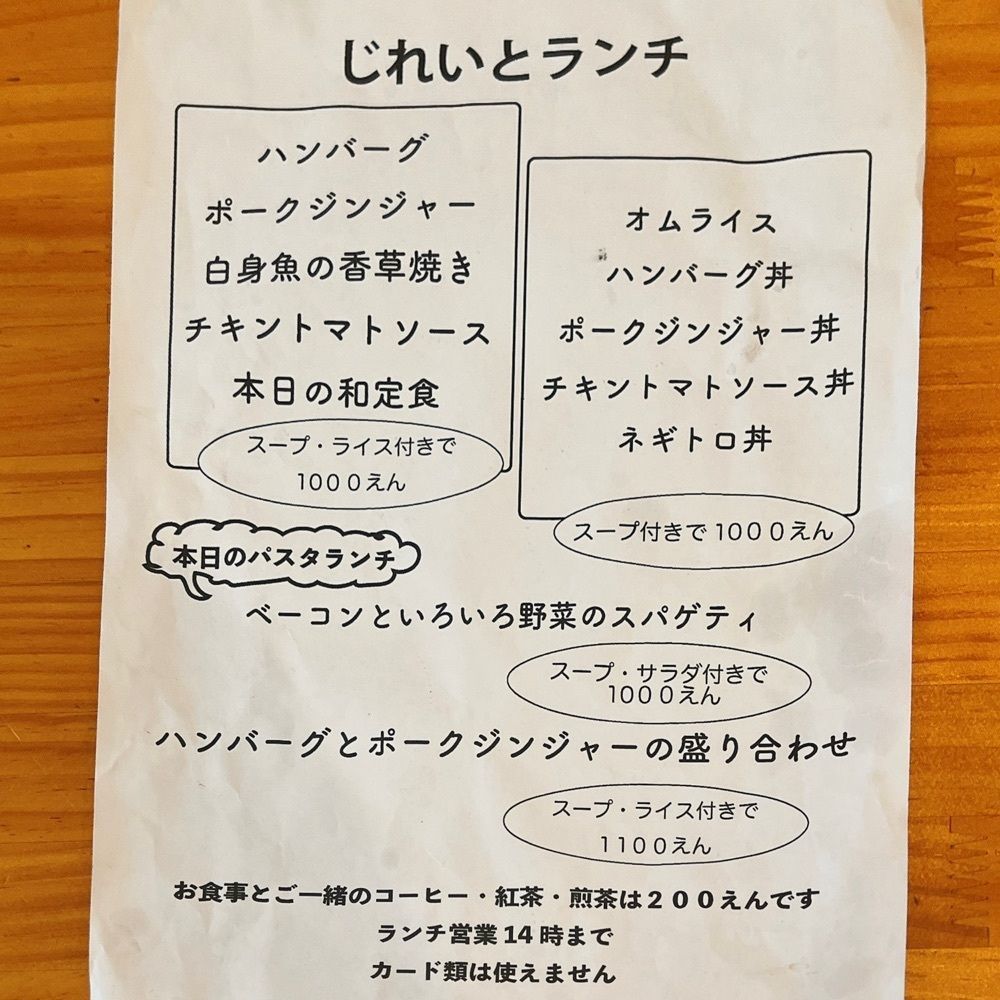 じれいとランチ
ハンバーグ
ポークジンジャー
白身魚の香草焼き
チキントマトソース
本日の和定食
スープ・ライス付きで
1000えん
オムライス
ハンバーグ丼
ポークジンジャー丼
チキントマトソース丼
ネギトロ丼
スープ付きで1000えん
本日のパスタランチ
ベーコンといろいろ野菜のスパゲティ
スープ・サラダ付きで
1000えん
ハンバーグとポークジンジャーの盛り合わせ
スープ・ライス付きで
1100えん
お食事とご一緒のコーヒー・紅茶・煎茶は200えんです
ランチ営業14時まで
カード類は使えません